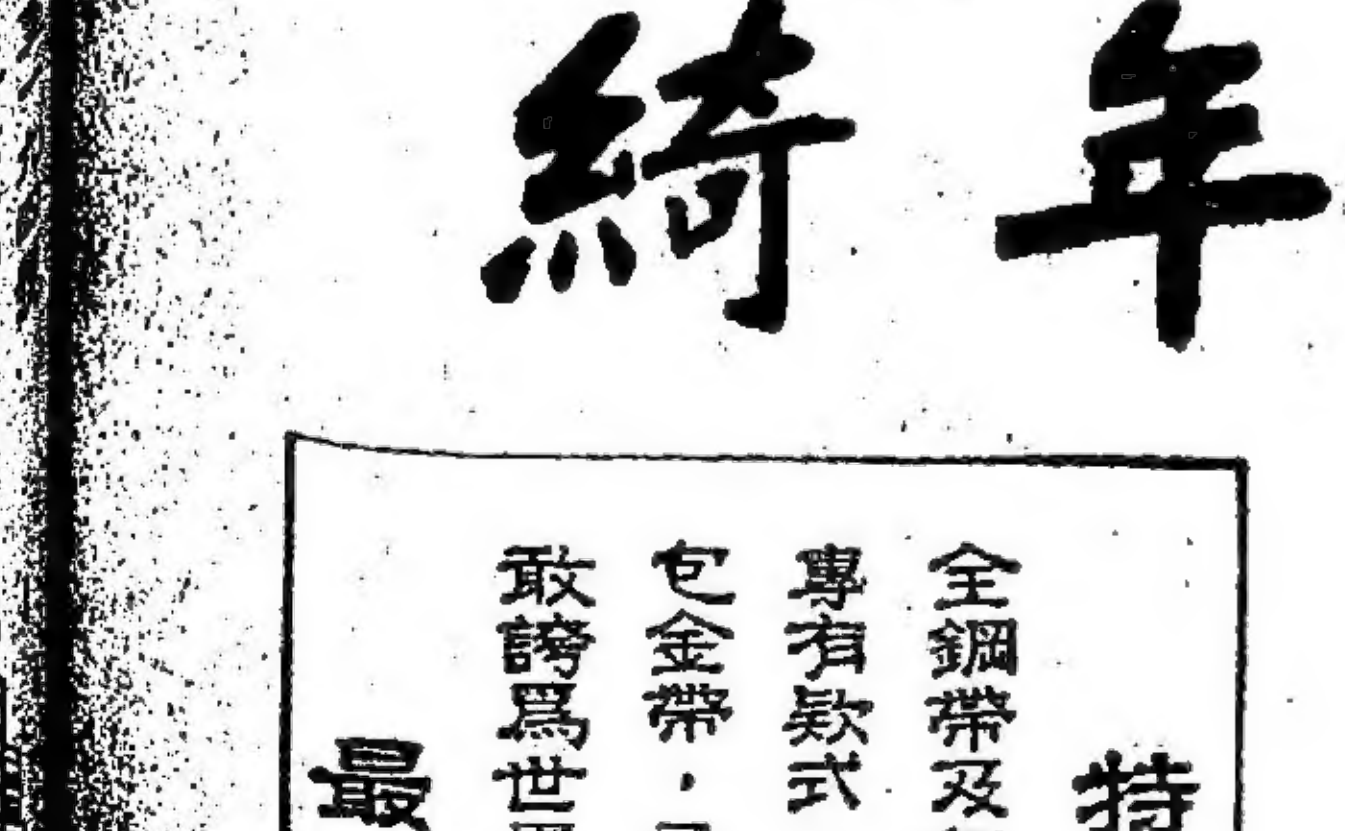 綺年
特
全鋼帶及
專有欵式
包金帶，
敢誇爲世
最